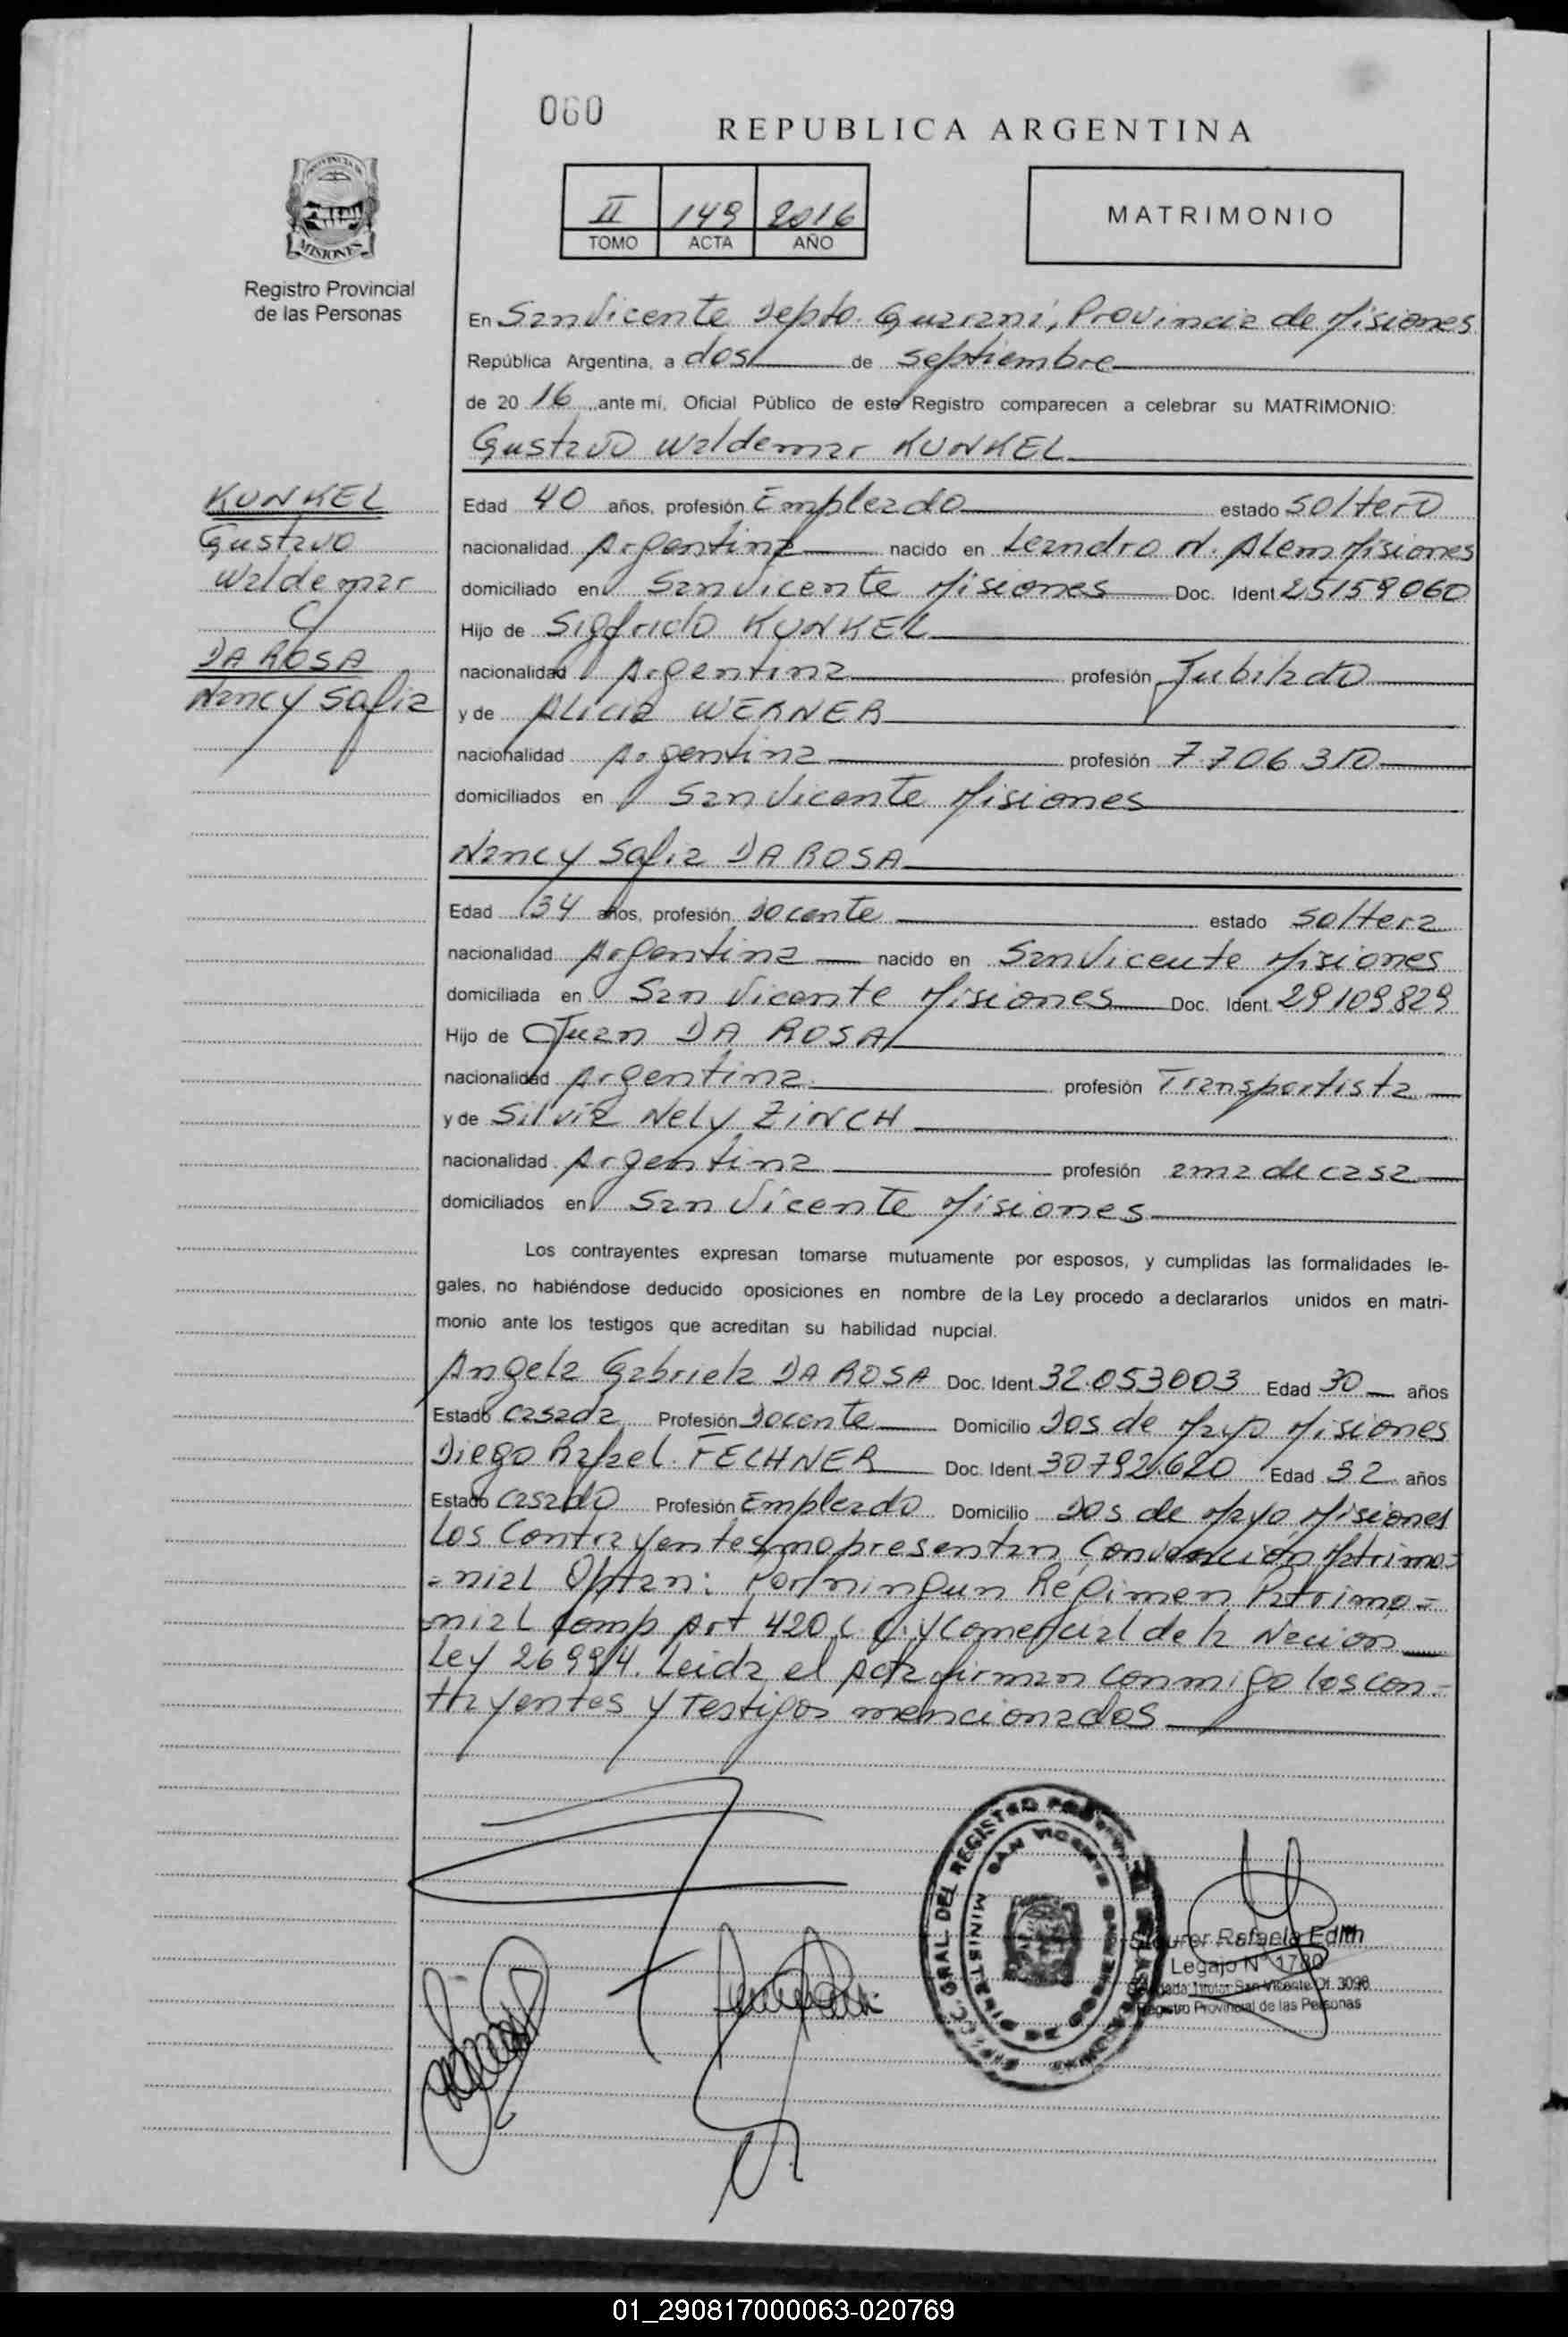 060
REPUBLICA ARGENTINA
II 149 2016
TOMO ACTA AÑO
MATRIMONIO
MISIONES
Registro Provincial
de las Personas
En San Vicente Depto. Guaraní, Provincia de Misiones
República Argentina, a dos de septiembre
de 20 16 ante mí, Oficial Público de este Registro comparecen a celebrar su MATRIMONIO:
Gustavo Waldemar KUNKEL
KUNKEL
Gustavo
Waldemar
DA ROSA
Nancy Sofia
Edad 40 años, profesión Empleado estado soltero
nacionalidad Argentina nacido en Leandro N. Alem Misiones
domiciliado en San Vicente Misiones Doc. Ident 25159060
Hijo de Sigfrido KUNKEL
nacionalidad Argentina profesión Jubilado
y de Alicia WERNER
nacionalidad Argentina profesión
domiciliados en San Vicente Misiones
Nancy Sofia DA ROSA
Edad 34 años, profesión Docente estado soltera
nacionalidad Argentina nacido en San Vicente Misiones
domiciliada en San Vicente Misiones Doc. Ident. 29109829
Hijo de Juan DA ROSA
nacionalidad Argentina profesión Transportista
y de Silvia Nely ZINCH
nacionalidad Argentina profesión ama de casa
domiciliados en San Vicente Misiones
Los contrayentes expresan tomarse mutuamente por esposos, y cumplidas las formalidades le-
gales, no habiéndose deducido oposiciones en nombre de la Ley procedo a declararlos unidos en matri-
monio ante los testigos que acreditan su habilidad nupcial.
Angela Gabriela DA ROSA Doc. Ident. 32.053003 Edad 30 años
Estado casada Profesión Docente Domicilio Dos de Mayo Misiones
Diego Rafael FECHNER Doc. Ident. 30792620 Edad 32 años
Estado casado Profesión Empleado Domicilio Dos de Mayo Misiones
Los Contrayentes no presentan Convención Matrimo=
=nial Optan: Por ningun Régimen Patrimo=
nial comp Art 420 C. C. y Comercial de la Nacion
Ley 26994. Leida el Acta firman conmigo los con=
trayentes y Testigos mencionados
GRAL. DEL REGISTRO
SAN VICENTE
Rafaela Edith
Legajo N° 1780
Titular San Vicente Of. 3098
Registro Provincial de las Personas
01_290817000063-020769